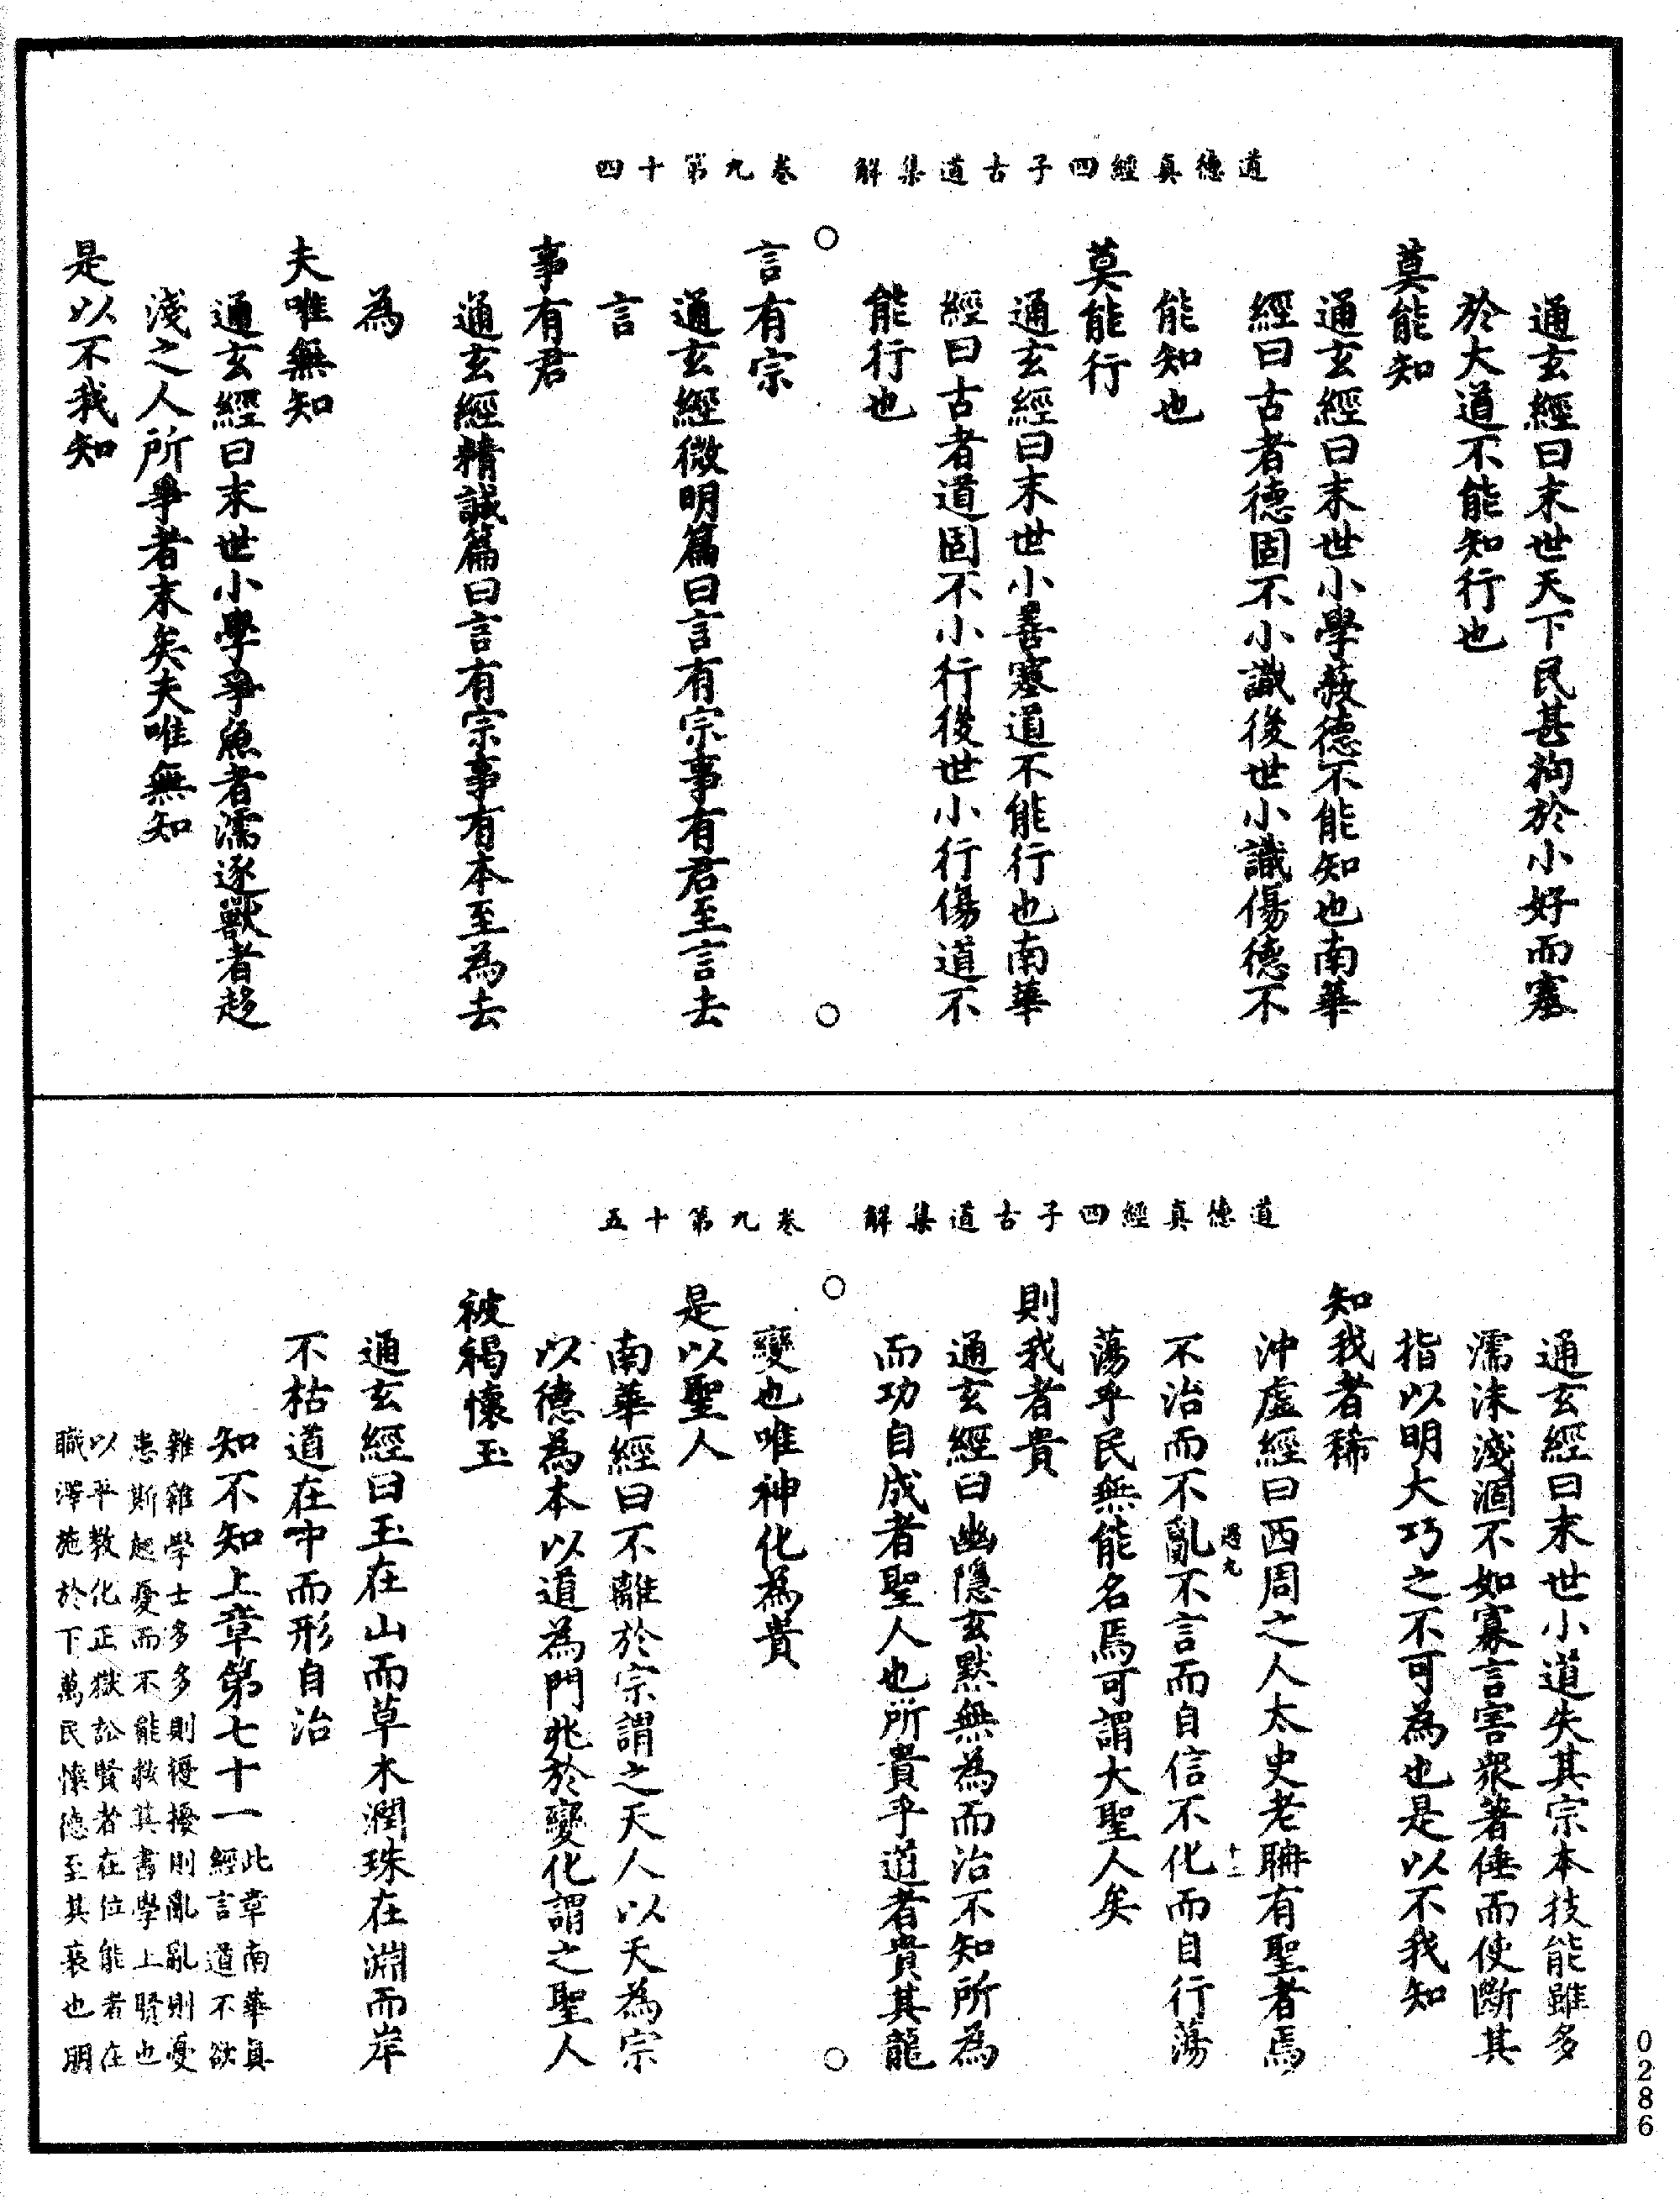 道德真經四子古道集解　卷九第十四
通玄經曰末世天下民甚拘於小好而塞
於大道不能知行也
莫能知
通玄經曰末世小學蔽德不能知也南華
經曰古者德固不小識後世小識傷德不
能知也
莫能行
通玄經曰末世小善塞道不能行也南華
經曰古者道固不小行後世小行傷道不
能行也
○　○
言有宗
通玄經微明篇曰言有宗事有君至言去
言
事有君
通玄經精誠篇曰言有宗事有本至為去
為
夫唯無知
通玄經曰末世小學爭魚者濡逐獸者趍
淺之人所爭者末矣夫唯無知
是以不我知
道德真經四子古道集解　卷九第十五
通玄經曰末世小道失其宗本技能雖多
濡沫淺涸不如寡言害衆著倕而使斷其
指以明大巧之不可為也是以不我知
知我者稀
沖虛經曰西周之人太史老聃有聖者焉
過九　十二
不治而不亂不言而自信不化而自行蕩
蕩乎民無能名焉可謂大聖人矣
則我者貴
通玄經曰幽隱玄默無為而治不知所為
而功自成者聖人也所貴乎道者貴其龍
○　○
變也唯神化為貴
是以聖人
南華經曰不離於宗謂之天人以天為宗
以德為本以道為門兆於變化謂之聖人
被褐懷玉
通玄經曰玉在山而草木潤珠在淵而岸
不枯道在中而形自治
知不知上章第七十一
此章南華真
經言道不欲
雜雜學士多多則擾擾則亂亂則憂
患斯起憂而不能救其書學上賢也
以平教化正獄訟賢者在位能者在
職澤施於下萬民懷德至其衰也朋
0286